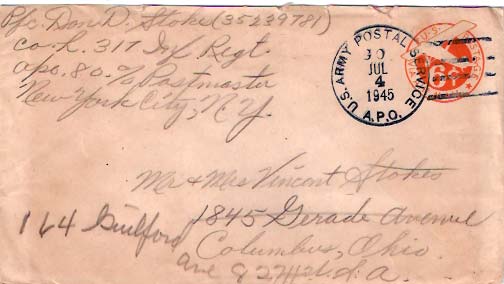 Pfc. Don D. Stokes (35239781)
Co. L. 317 Inf. Regt.
apo. 80. % Postmaster
New York City, N.Y.
U.S. ARMY POSTAL SERVICE
30
JUL
4
1945
A.P.O.
U.S. POSTAGE
VIA AIR
6¢
Mr & Mrs Vincent Stokes
1845 Gerade Avenue
164 Guilford
Columbus, Ohio.
Ave